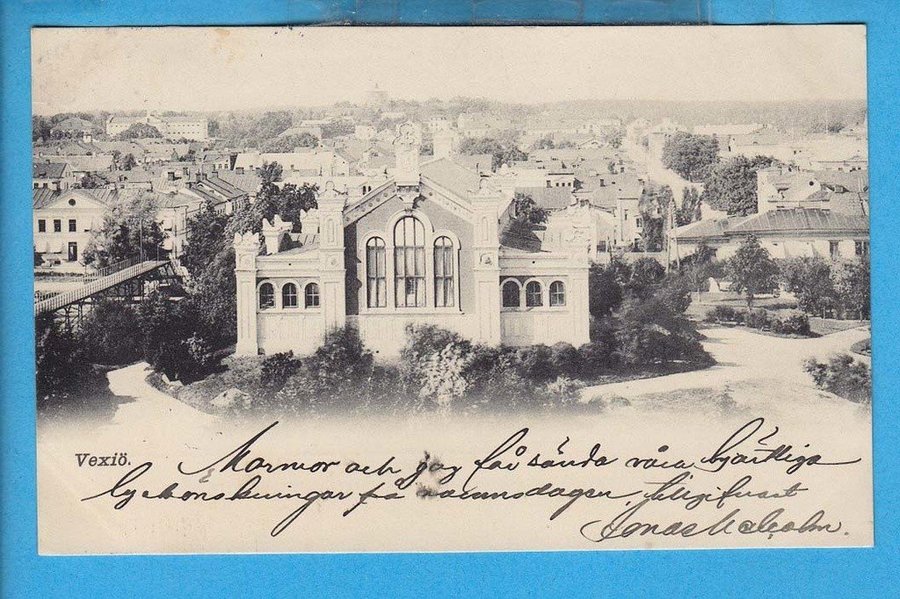 Vexiö.
Mormor och jag får sända våra hjärtliga
lyckönskningar på namnsdagen,
Jonas Malcolm.